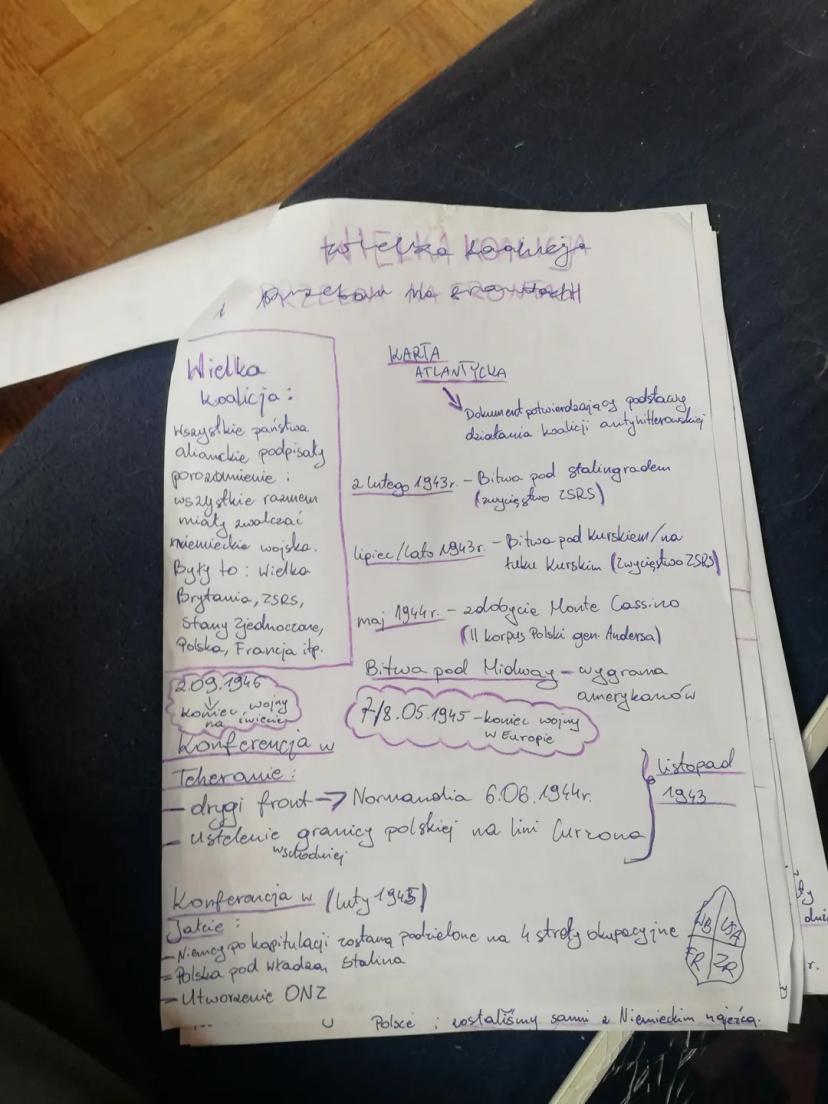 Wielka koalicja
i przełom na frontach
Wielka
koalicja:
Wszystkie państwa
alianckie podpisały
porozumienie:
wszystkie razem
miały zwalczać
niemieckie wojska.
Były to: Wielka
Brytania, ZSRS,
Stany Zjednoczone,
Polska, Francja itp.
2.09.1945
koniec wojny
na świecie
KARTA
ATLANTYCKA
Dokument potwierdzający podstawy
działania koalicji antyhitlerowskiej
2 lutego 1943r. – Bitwa pod stalingradem
(zwycięstwo ZSRS)
lipiec/lato 1943r. – Bitwa pod Kurskiem/na
łuku Kurskim (zwycięstwo ZSRS)
maj 1944r. – zdobycie Monte Cassino
(II korpus Polski gen. Andersa)
Bitwa pod Midway – wygrana
amerykanów
7/8.05.1945 – koniec wojny
w Europie
Konferencja w
Teheranie:
– drugi front → Normandia 6.06.1944r.
– ustelenie granicy polskiej na lini Curzona
wschodniej
listopad
1943
Konferencja w (luty 1945)
Jałcie:
– Niemcy po kapitulacji zostaną podzielone na 4 strefy okupacyjne
– Polska pod władzą Stalina
– Utworzenie ONZ
WB USA
FR ZR
Polsce i zostaliśmy sami z Niemieckim najeźcą.
r.